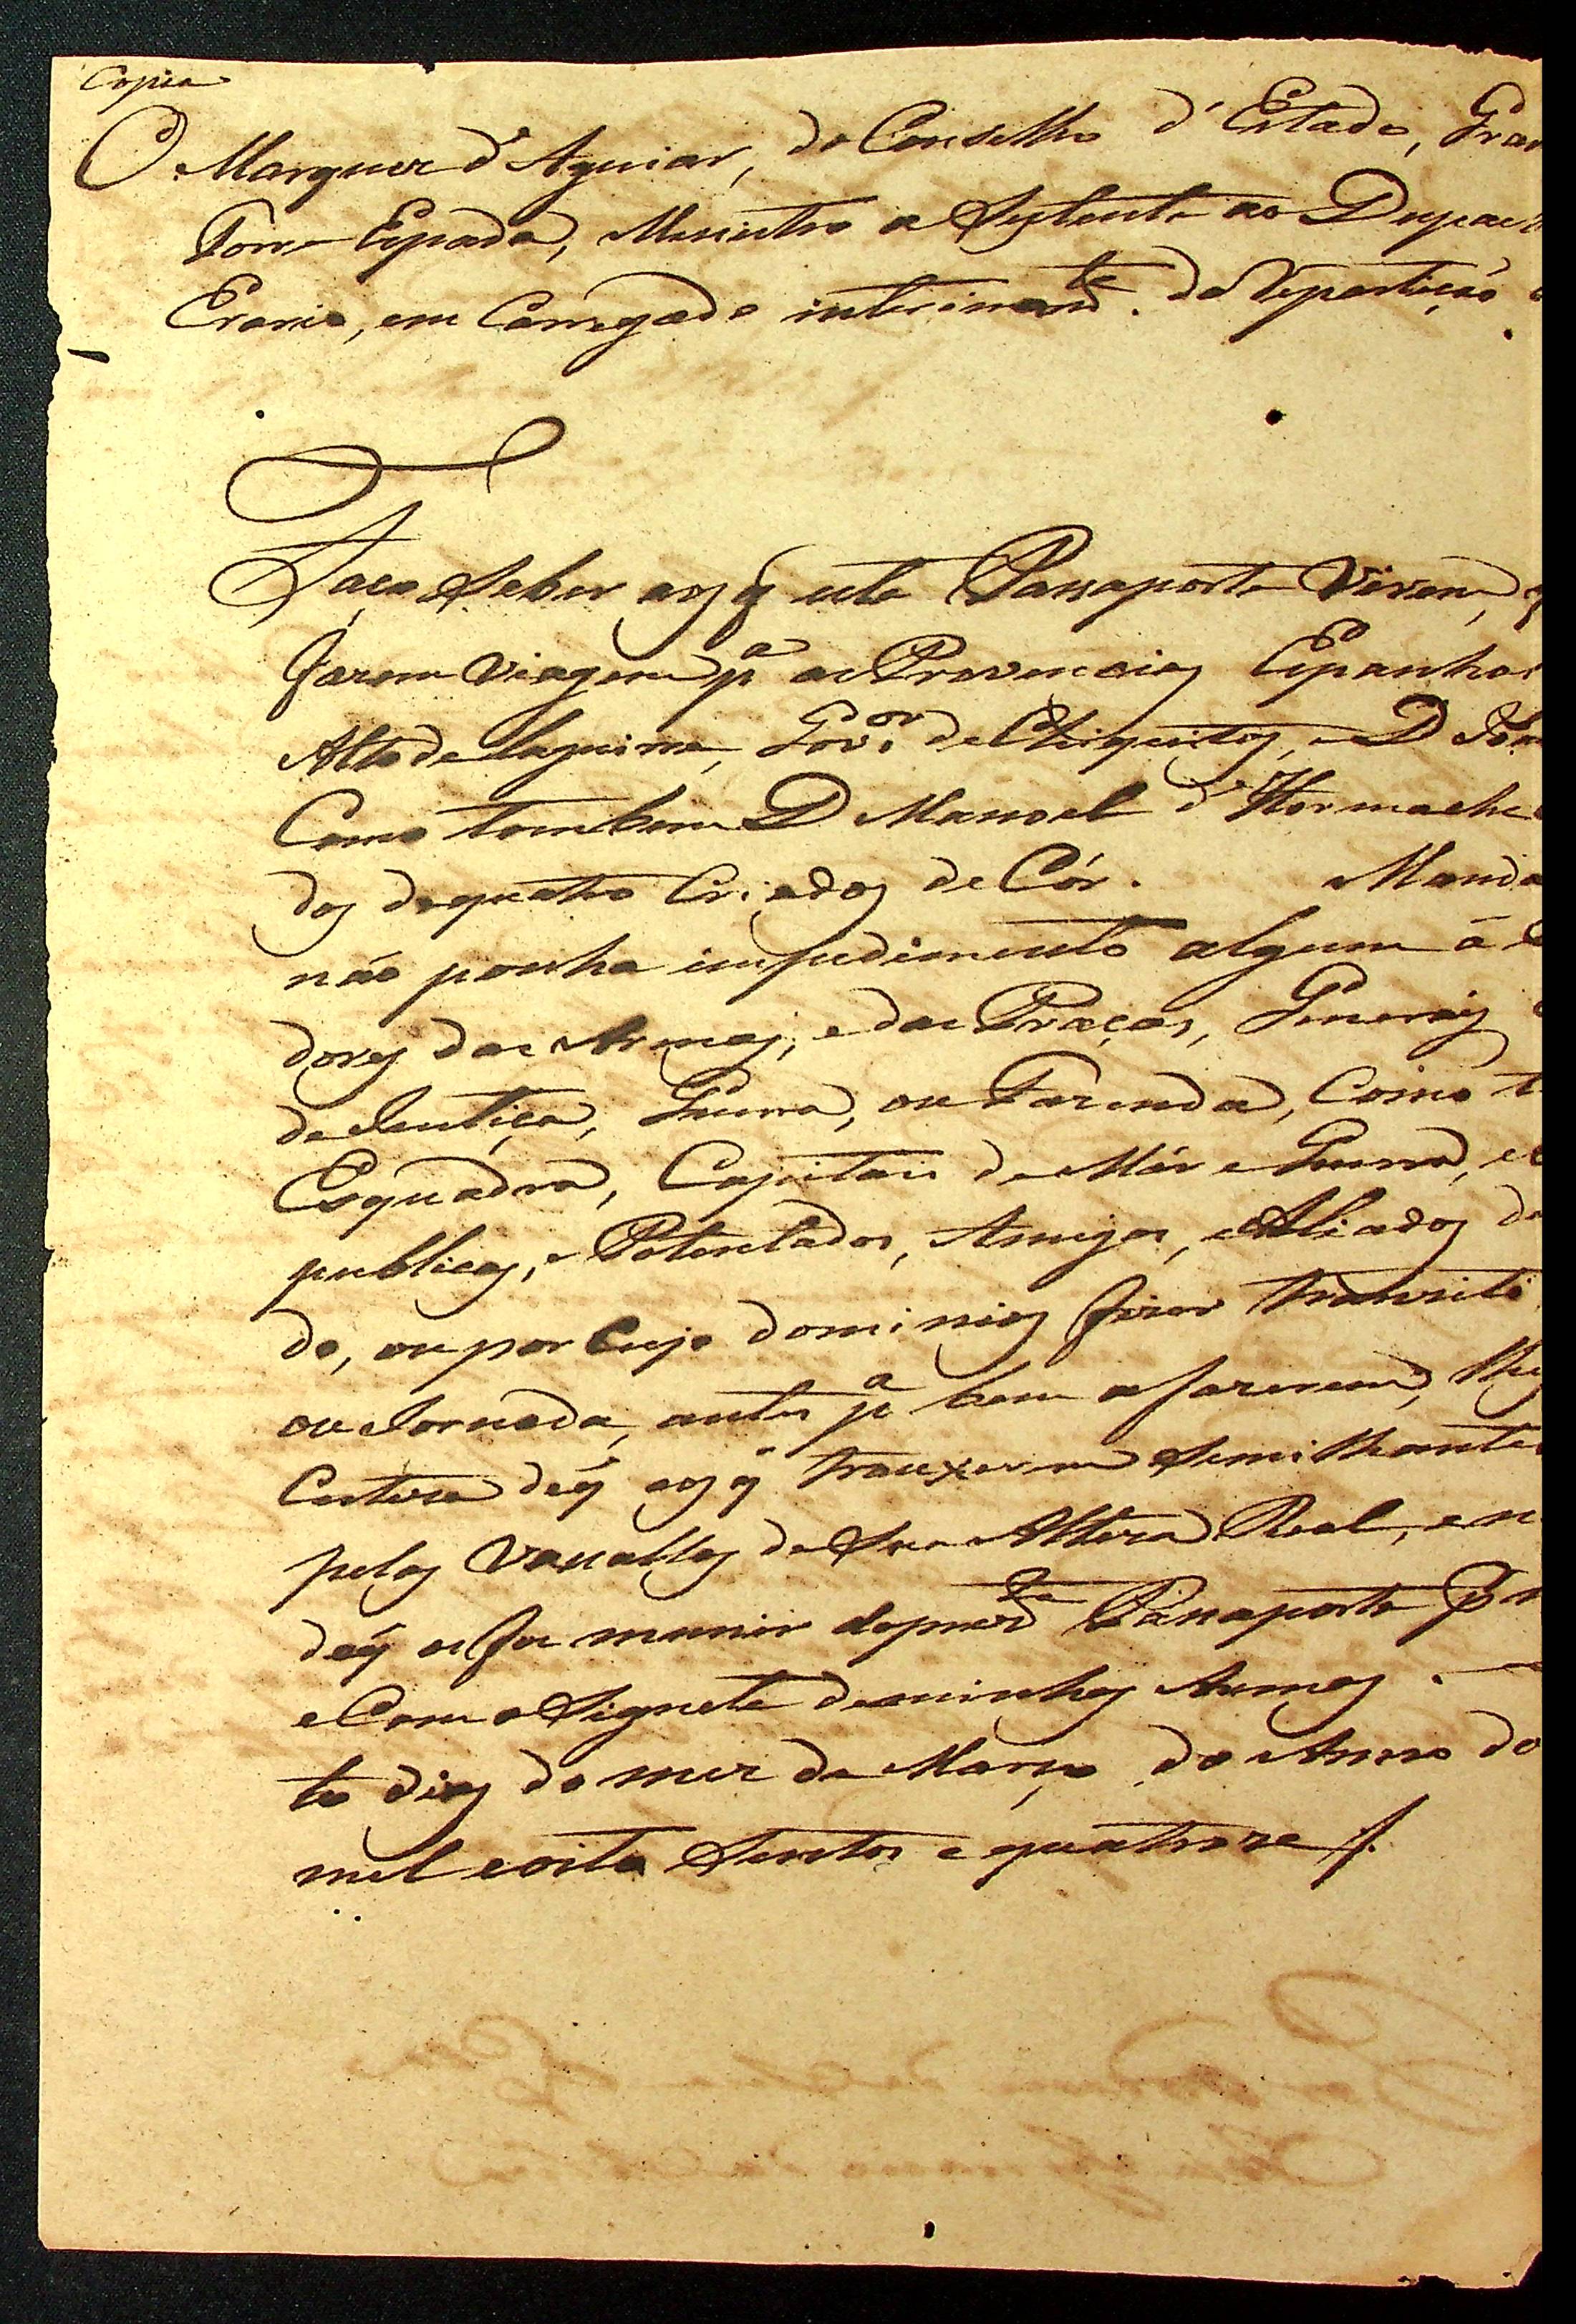 Copia
O Marquez d'Aguiar, do Conselho d'Estado, Gran
Torre Espada, Menistro a Sestente ao Despac
Erario, em Carregado interinamte. da Repartição
Faço Saber aos q̃ este Passaporte Virem,
fazem Viagem pa as Provencias Espanho
Alto de laguima, Govor. de Chiquitos, e D
Como tambem D Manoel d'Hormache
dos de quatro Criados de Cór. Manda
não ponha impedimento algum á
dores das Armas, e das Praças, Generáis
de Justiça, Guerra, ou Fazenda, Como t
Esquadra, Capitáis de Már e Guerra, e
publicas, e Potentados, Amigos, e Aliados de
do, ou por Cujo dominios fizer tranzito
ou Jornada, antes pa bem a fazerem, lhe
Certeza dé q̃ os q̃ trouxerem Semilhante
pelos Vassallos de Sua Alteza Real, e n
dé q̃ os fiz munir do prezte Passaporte P
e Com o Signete de minhas Armas.
to dias do mez de Março do Anno do
mil e oito Sentos e quatroze